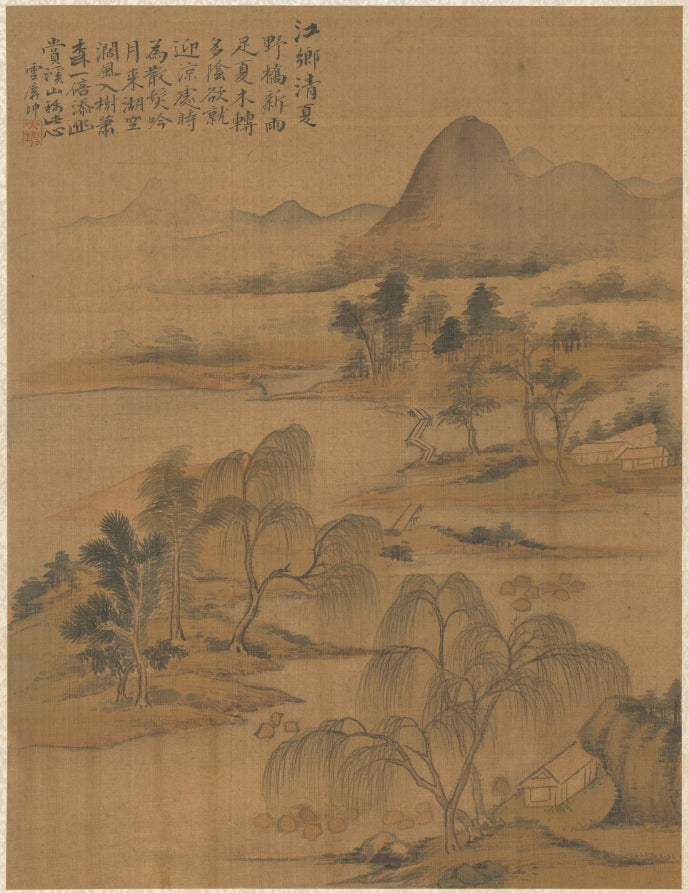 江鄉清夏
野橋新雨
足夏木轉
多陰欲就
迎涼處時
為散髮吟
月來湖空
闊風入樹蕭
森一倍添幽
賞溪山稱此心
雲屏坤